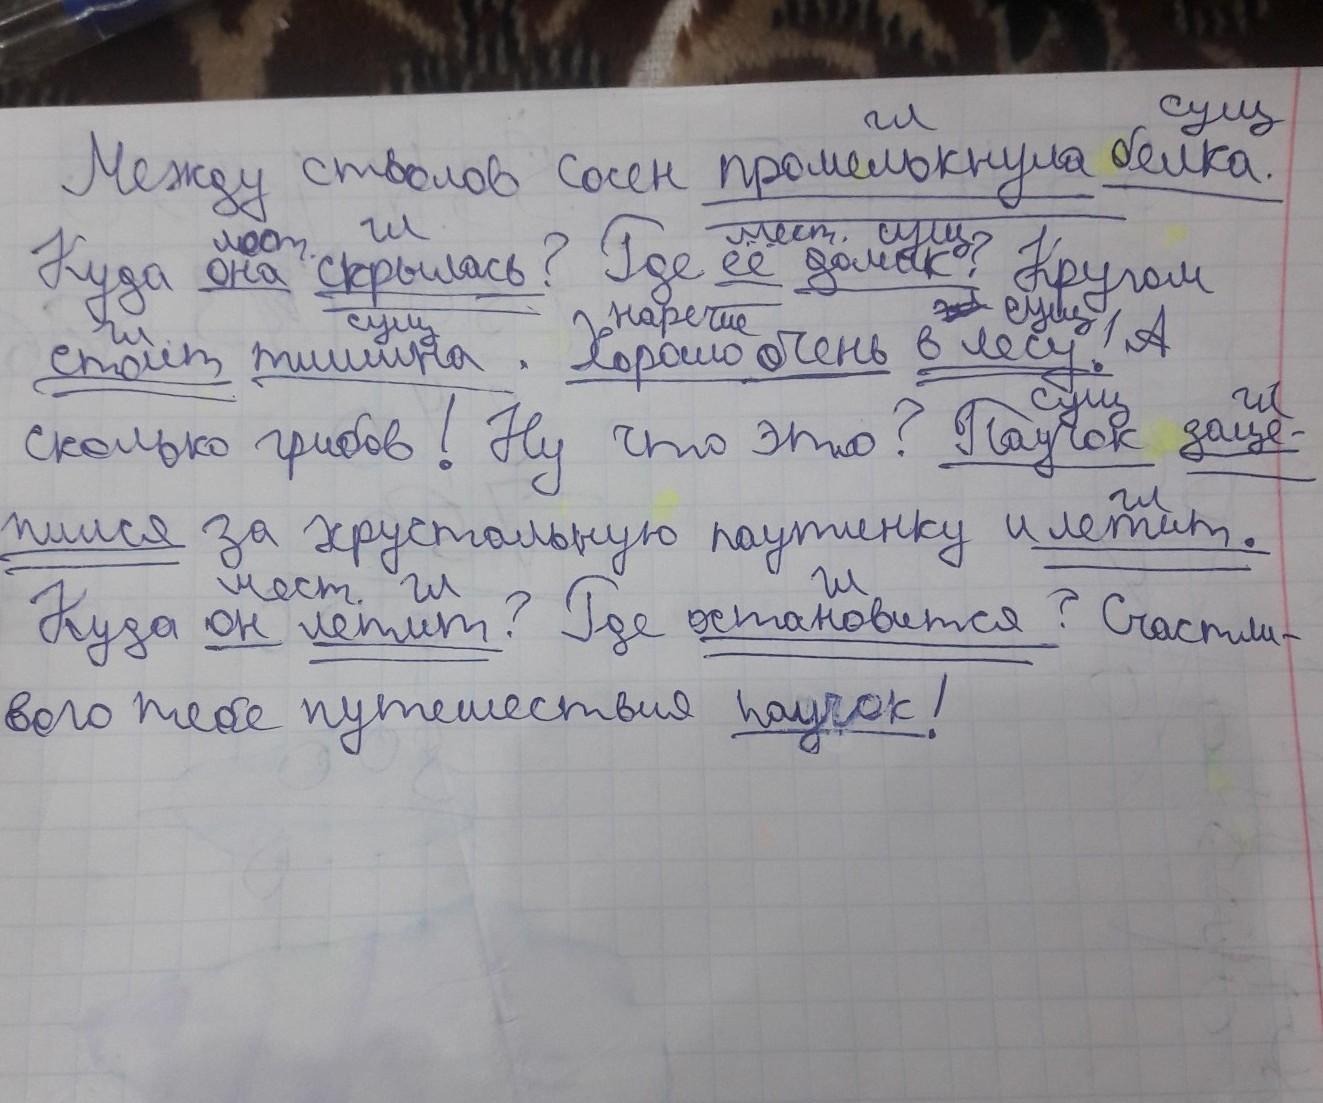 гл сущ
Между стволов сосен промелькнула белка.
мест. гл мест. сущ
Куда она скрылась? Где её домик? Кругом
гл сущ наречие сущ
стоит тишина. Хорошо очень в лесу! А
сущ гл
сколько грибов! Ну что это? Паучок заце-
гл
пился за хрустальную паутинку и летит.
мест. гл гл
Куда он летит? Где остановится? Счастли-
вого тебе путешествия паучок!